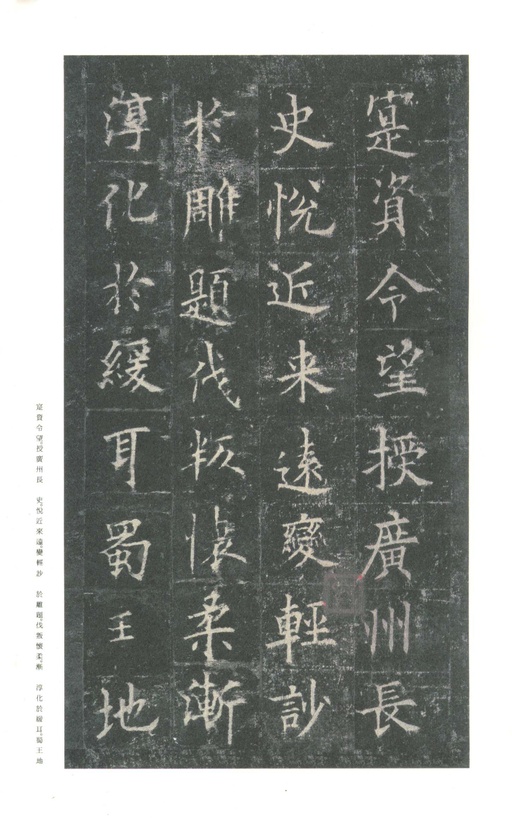 寔資令望授廣州長
史悅近来遠變輕訬
於雕題伐叛懷柔漸
淳化於緩耳蜀王地
寔資令望授廣州長 史悅近來遠變輕訬 於雕題伐叛懷柔漸 淳化於緩耳蜀王地